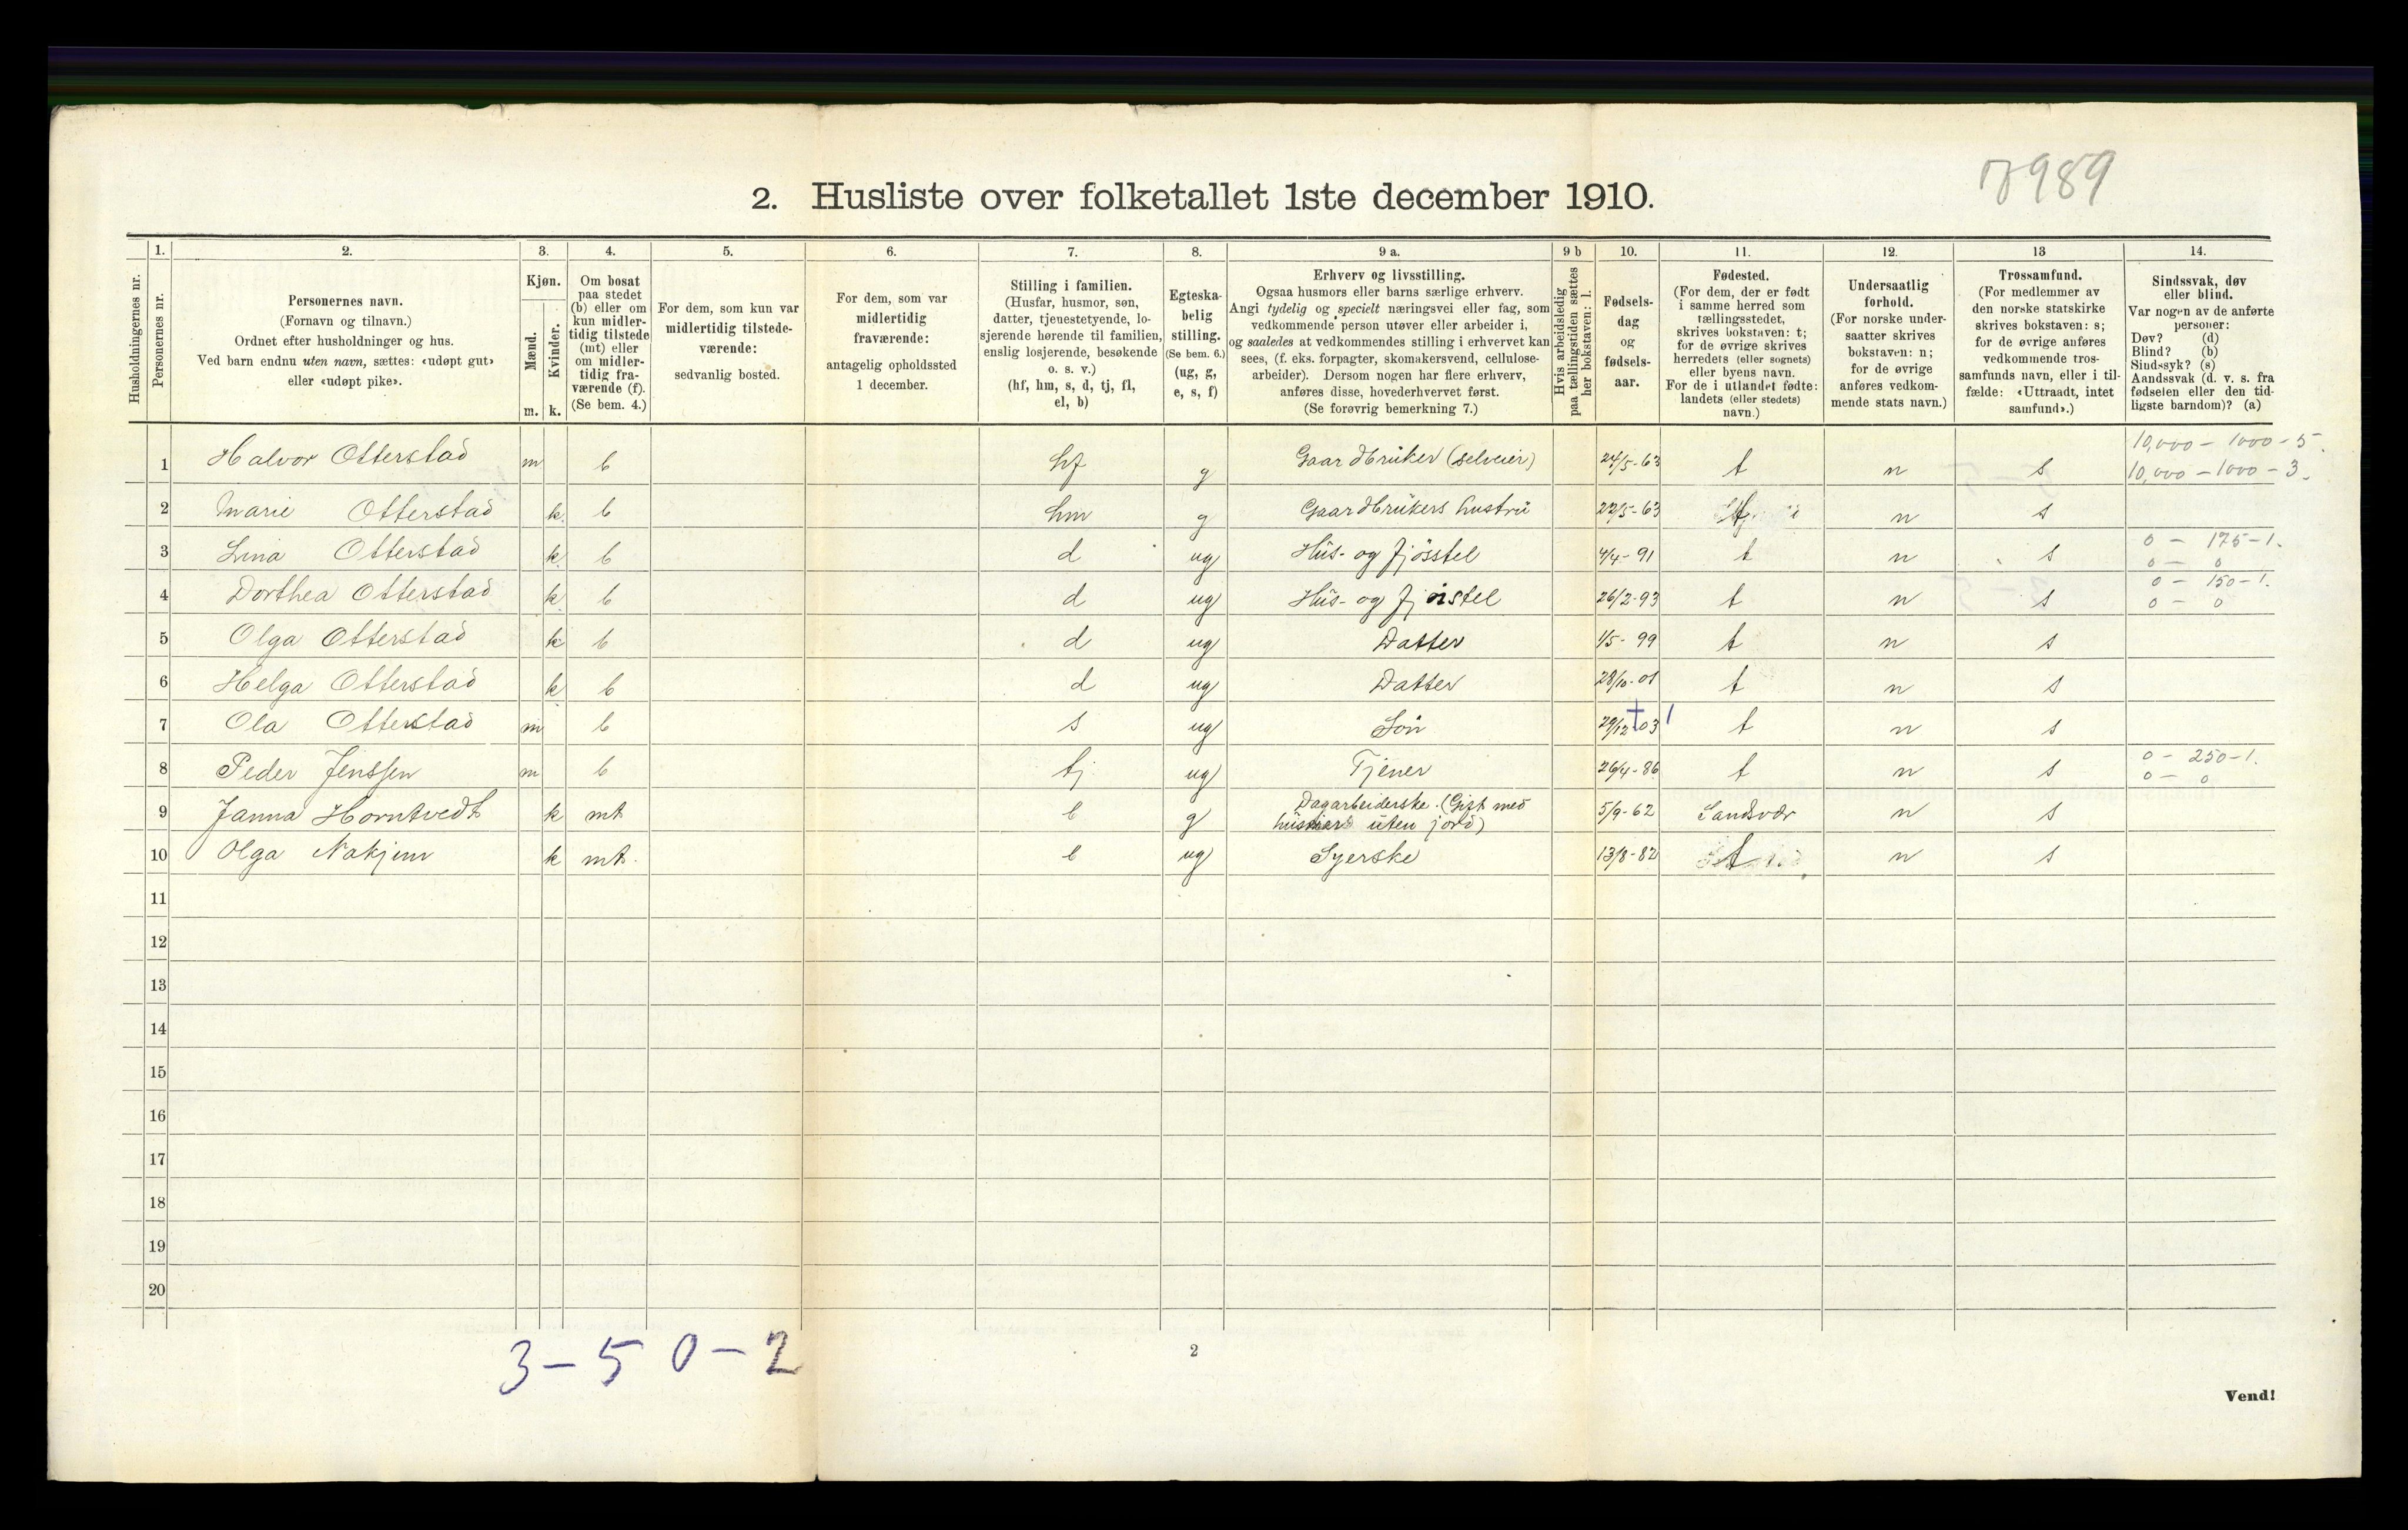 7989
2. Husliste over folketallet 1ste december 1910.
Husholdningernes nr.
1. Personernes nr.
2. Personernes navn.
(Fornavn og tilnavn.)
Ordnet efter husholdninger og hus.
Ved barn endnu uten navn, sættes: «udøpt gut»
eller «udøpt pike».
3. Kjøn.
Mænd. m.
Kvinder. k.
4. Om bosat
paa stedet
(b) eller om
kun midler-
tidig tilstede
(mt) eller
om midler-
tidig fra-
værende (f).
(Se bem. 4.)
5. For dem, som kun var
midlertidig tilstede-
værende:
sedvanlig bosted.
6. For dem, som var
midlertidig
fraværende:
antagelig opholdssted
1 december.
7. Stilling i familien.
(Husfar, husmor, søn,
datter, tjenestetyende, lo-
sjerende hørende til familien,
enslig losjerende, besøkende
o. s. v.)
(hf, hm, s, d, tj, fl,
el, b)
8. Egteska-
belig
stilling.
(Se bem. 6.)
(ug, g,
e, s, f)
9 a. Erhverv og livsstilling.
Ogsaa husmors eller barns særlige erhverv.
Angi tydelig og specielt næringsvei eller fag, som
vedkommende person utøver eller arbeider i,
og saaledes at vedkommendes stilling i erhvervet kan
sees, (f. eks. forpagter, skomakersvend, cellulose-
arbeider). Dersom nogen har flere erhverv,
anføres disse, hovederhvervet først.
(Se forøvrig bemerkning 7.)
9 b Hvis arbeidsledig
paa tællingstiden sættes
her bokstaven: l.
10. Fødsels-
dag
og
fødsels-
aar.
11. Fødested.
(For dem, der er født
i samme herred som
tællingsstedet,
skrives bokstaven: t;
for de øvrige skrives
herredets (eller sognets)
eller byens navn.
For de i utlandet fødte:
landets (eller stedets)
navn.)
12. Undersaatlig
forhold.
(For norske under-
saatter skrives
bokstaven: n;
for de øvrige
anføres vedkom-
mende stats navn.)
13 Trossamfund.
(For medlemmer av
den norske statskirke
skrives bokstaven: s;
for de øvrige anføres
vedkommende tros-
samfunds navn, eller i til-
fælde: «Uttraadt, intet
samfund».)
14. Sindssvak, døv
eller blind.
Var nogen av de anførte
personer:
Døv? (d)
Blind? (b)
Sindssyk? (s)
Aandssvak (d. v. s. fra
fødselen eller den tid-
ligste barndom)? (a)
1 Halvor Otterstad m b hf g Gaardbruker (selveier) 24/5-63 t n s 10,000 - 1000 - 5.
10,000 - 1000 - 3.
2 Marie Otterstad k b hm g Gaardbrukers hustru 22/5-63 t n s
3 Lina Otterstad k b d ug Hus- og fjøsstel 4/4-91 t n s 0 - 175-1.
0 - 0
4 Dorthea Otterstad k b d ug Hus- og fjøsstel 26/2-93 t n s 0 - 150-1.
0 - 0
5 Olga Otterstad k b d ug Datter 1/5-99 t n s
6 Helga Otterstad k b d ug Datter 28/10-01 t n s
7 Ola Otterstad m b s ug Søn 29/12-03 t n s
8 Peder Jenssen m b tj ug Tjener 26/4-86 t n s 0 - 250-1.
0 - 0
9 Janna Horntvedt k mt b g Dagarbeiderske. (Gift med
husmand uten jord) 5/9-62 Sandsvær n s
10 Olga Nakjem k mt b ug Syerske 13/8-82 t n s
11
12
13
14
15
16
17
18
19
20
3-5 0-2
2
Vend!